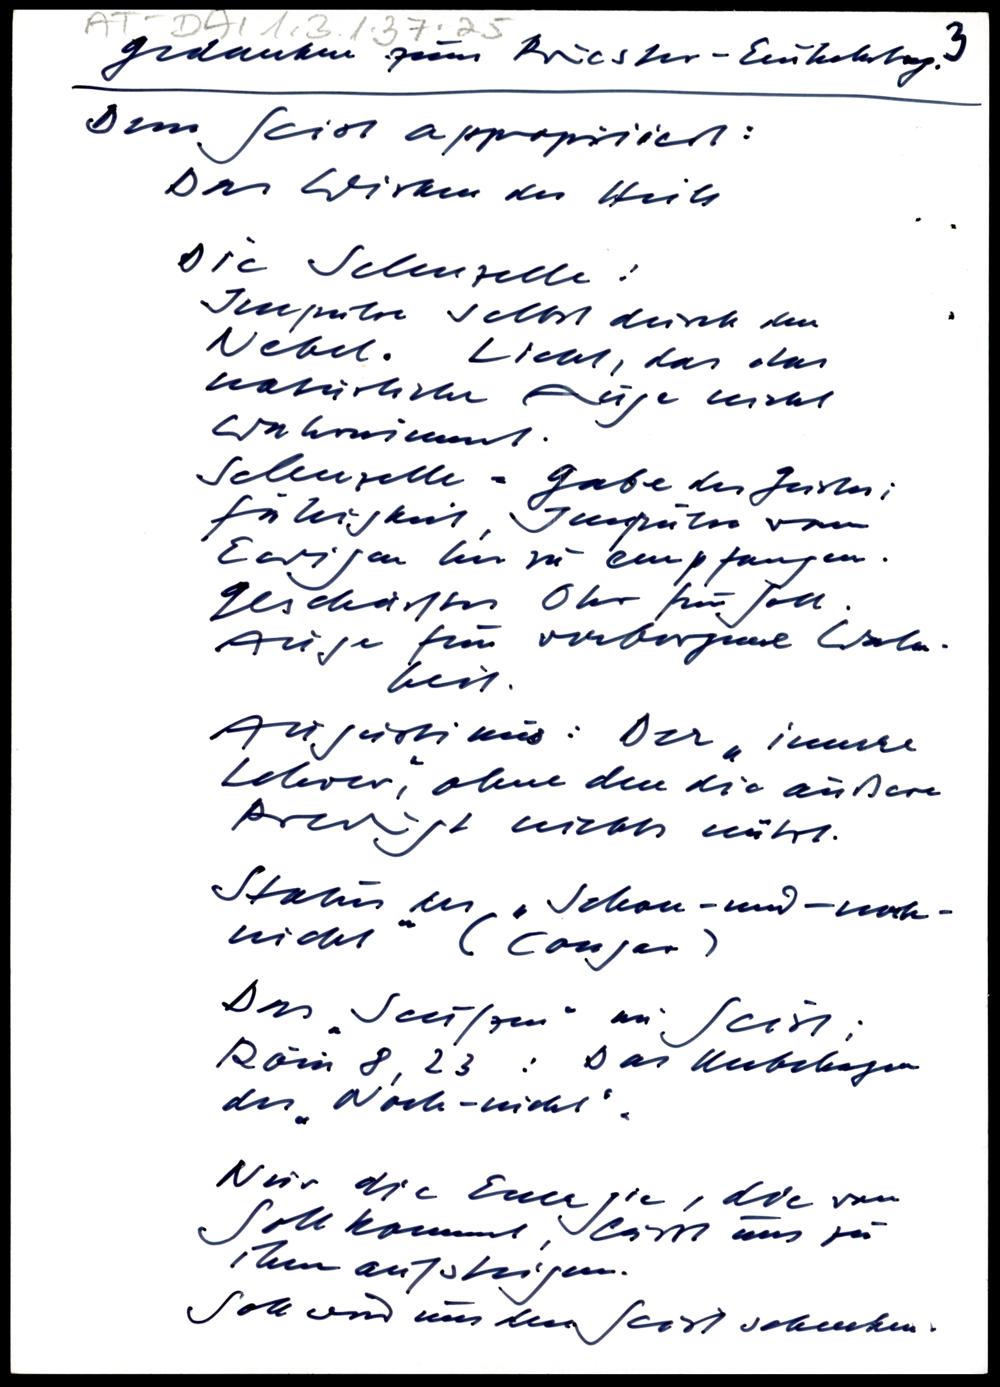 AT-DAI 1.3.1.37.25
3
Gedanken zum Priester-Einkehrtag.
Dem Geist appropriiert:
Das Wirken des Heils
Die Selenzelle:
Impulse selbst durch den
Nebel. Licht, das das
natürliche Auge nicht
wahrnimmt.
Selenzelle = Gabe des Geistes;
Fähigkeit, Impulse vom
Ewigen her zu empfangen.
Geschärftes Ohr für Gott.
Auge für verborgene Wahr-
heit.
Augustinus: Der „innere
Lehrer", ohne den die äußere
Predigt nichts nützt.
Status des „Schon-und-noch-
nicht" (Congar)
Das „Seufzen" im Geist;
Röm 8,23 : Das Unbehagen
des „Noch-nicht".
Nur die Energie, die von
Gott kommt, lässt uns zu
ihm aufsteigen.
Gott wird uns den Geist schenken.